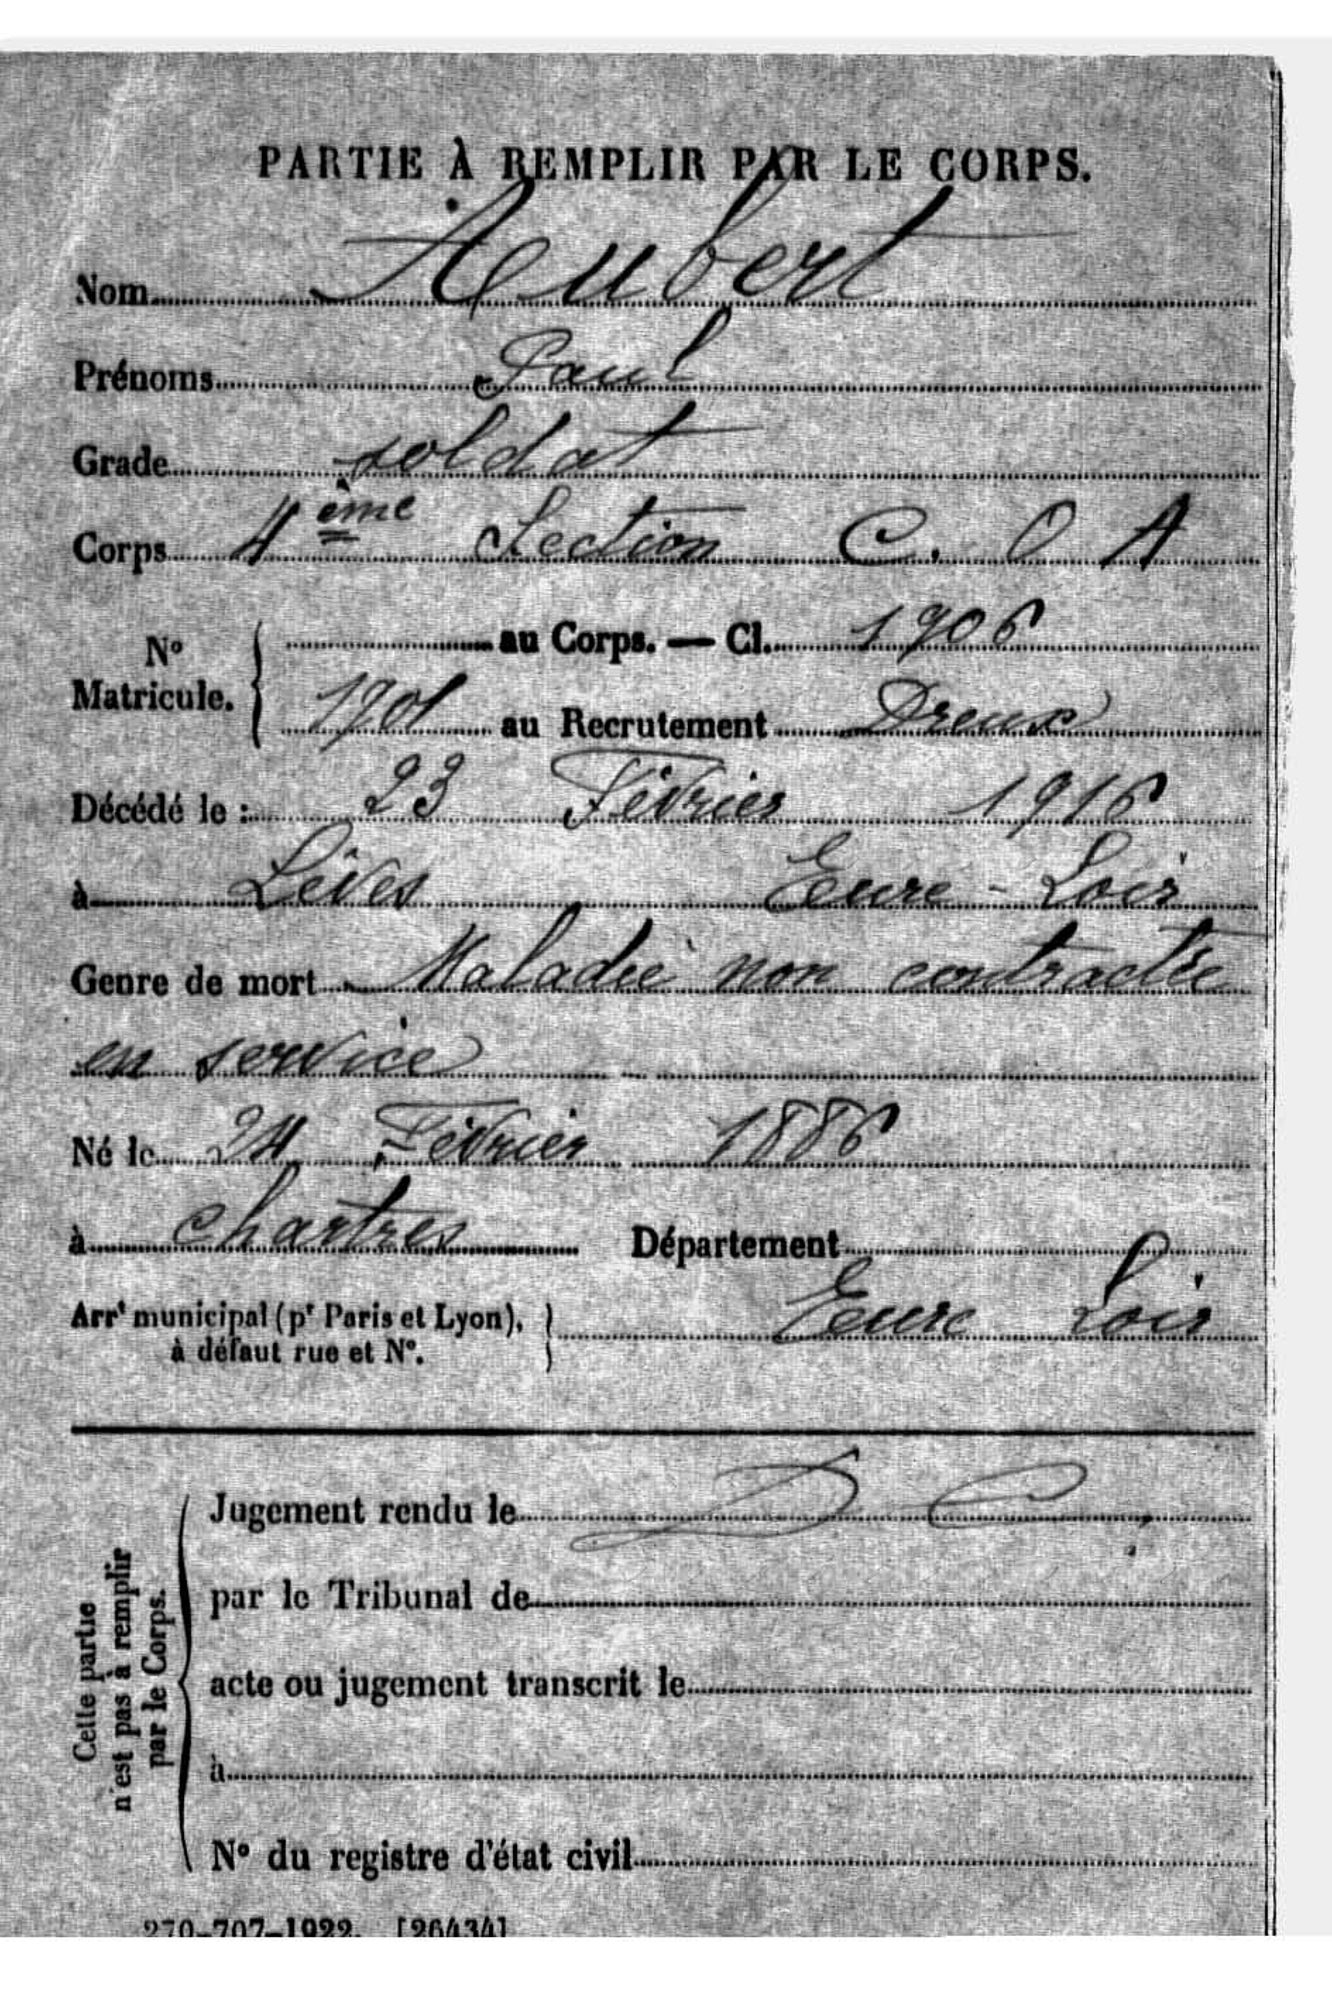 PARTIE À REMPLIR PAR LE CORPS.
Nom Aubert
Prénoms Paul
Grade soldat
Corps 4ème Section C. O A
N° Matricule. { au Corps. — Cl. 1906
1901 au Recrutement Dreux
Décédé le : 23 Février 1916
à Lèves Eure-Loir
Genre de mort Maladie non contractée
en service
Né le 24 Février 1886
à Chartres Département
Arrt municipal (pr Paris et Lyon), } Eure Loir
à défaut rue et N°.
Cette partie
n'est pas à remplir
par le Corps.
Jugement rendu le
par le Tribunal de
acte ou jugement transcrit le
à
N° du registre d'état civil
270-707-1922. [26434]